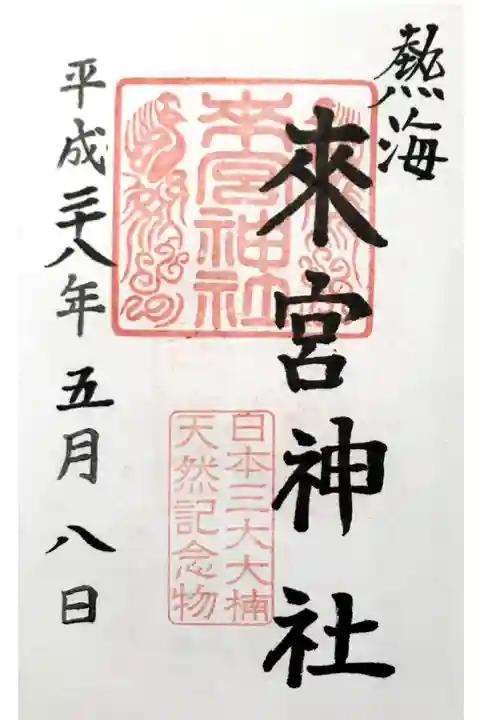 熱海
來宮神社
来宮神社
日本三大大楠
天然記念物
平成二十八年五月八日